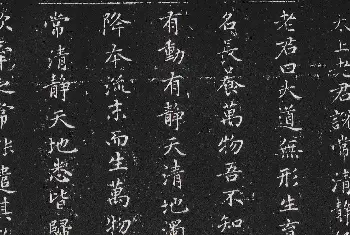 太上老君說常清靜經
老君曰大道無形生育
名長養萬物吾不知
有動有靜天清地濁
降本流末而生萬物
常清靜天地悉皆歸
欲而常能遣其